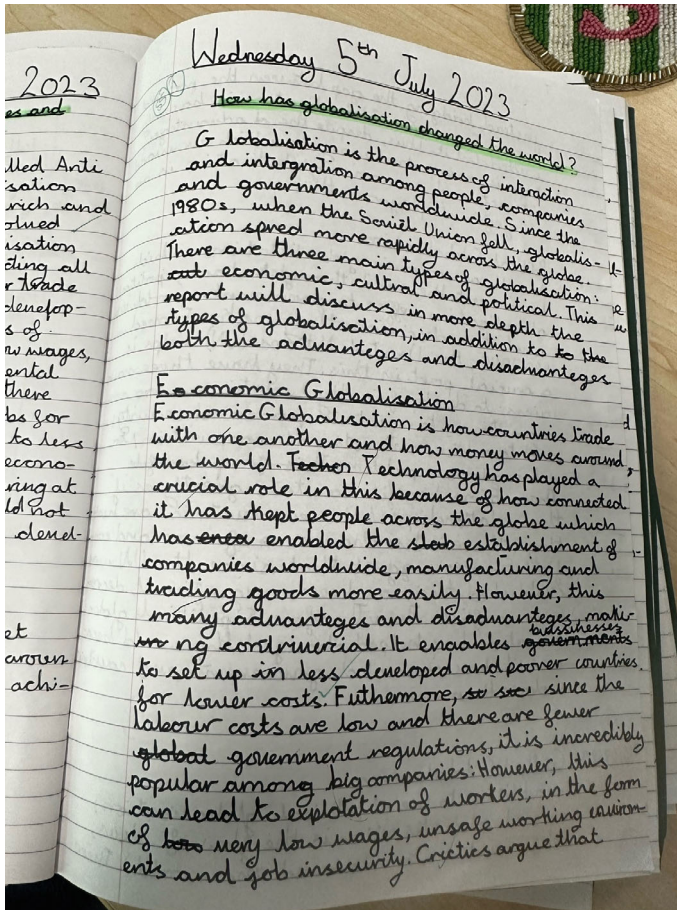 2023
es and
lled Anti
isation
rich and
olved
isation
ding all
r trade
s of
w wages,
ental
there
bs for
to less
econo-
ring at
ld not
devel-
et
achi-
Wednesday 5th July 2023
How has globalisation changed the world?
Globalisation is the process of interaction
and intergration among people, companies
and governments worldwide. Since the
1980s, when the Soviet Union fell, globalis-
ation spred more rapidly across the globe.
There are three main types of globalisation:
economic, cultral and political. This
report will discuss in more depth the
types of globalisation, in addition to to the
both the advanteges and disadvanteges
Economic Globalisation
Economic Globalisation is how countries trade
with one another and how money moves around
the world. Techon Technology has played a
crucial role in this because of how connected
it has kept people across the globe which
has enabled the stab establishment of
companies worldwide, manufacturing and
trading goods more easily. However, this
many advanteges and disadvanteges, maki-
ng contriversial. It enaables governments bussinesses
to set up in less developed and poorer countries
for lower costs. Futhermore, since the
labour costs are low and there are fewer
global government regulations, it is incredibly
popular among big companies. However, this
can lead to explotation of workers, in the form
of very low wages, unsafe working enviorm-
ents and job insecurity. Crictics argue that